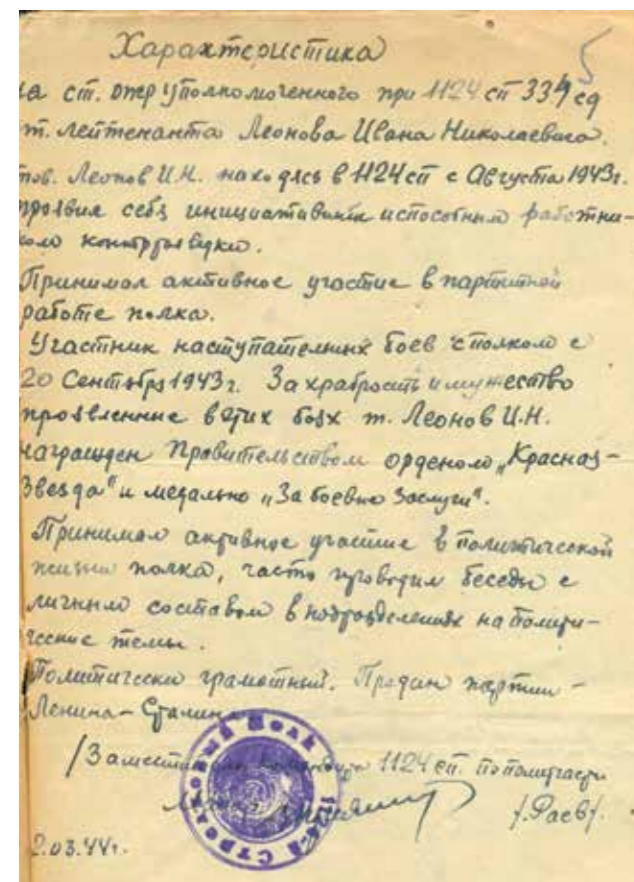 Характеристика
5
на ст. оперуполномоченного при 1124 сп 334 сд
т. лейтенанта Леонова Ивана Николаевича.
тов. Леонов И.Н. находясь в 1124 сп с Августа 1943г.
проявил себя инициативным и способным работни-
ком контрразведки.
Принимал активное участие в партийной
работе полка.
Участник наступательных боев с полком с
20 Сентября 1943г. За храбрость и мужество
проявленные в этих боях т. Леонов И.Н.
награжден Правительством орденом „Красная-
Звезда" и медалью „За боевые заслуги".
Принимал активное участие в политической
жизни полка, часто проводил беседы с
личным составом в подразделениях на полити-
ческие темы.
Политически грамотный. Предан партии -
Ленина - Сталина
/Заместитель командира 1124 сп. по политчасти
/.Раев/.
2.03.44г.
1124-й Стрелковый Полк